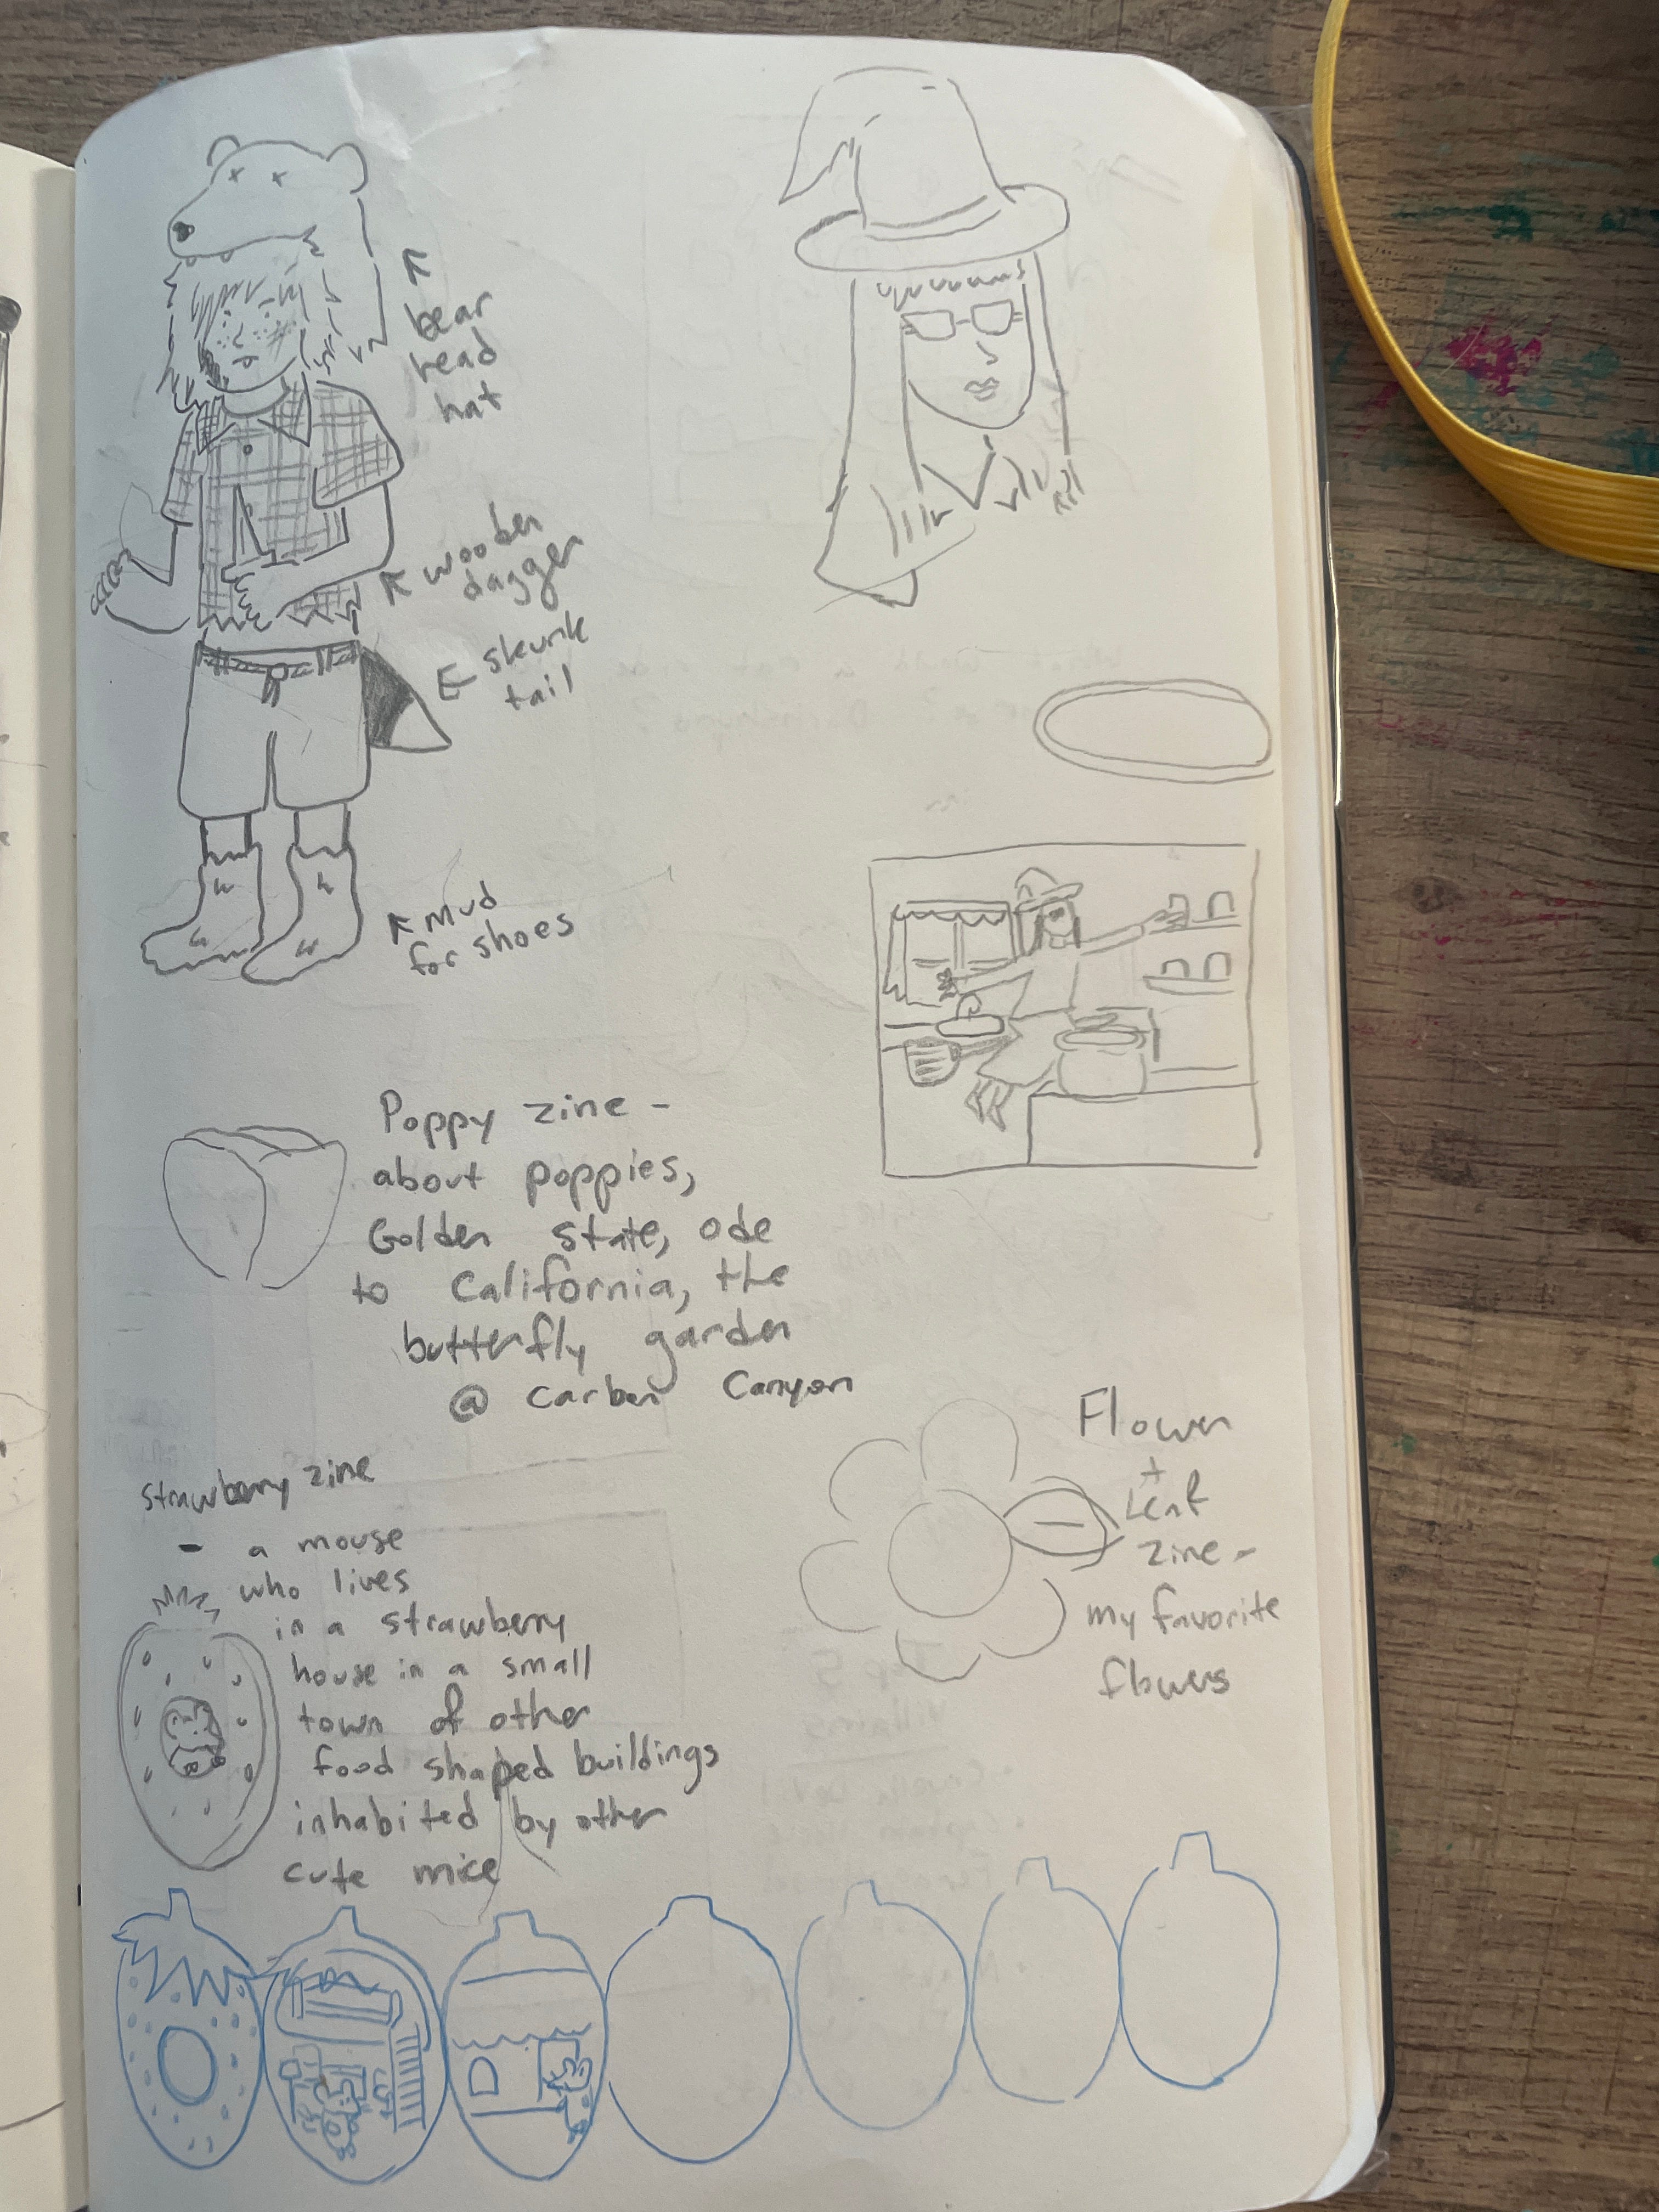 bear
head
hat
wooden
dagger
skunk
tail
mud
for shoes
Poppy zine -
about poppies,
Golden state, ode
to California, the
butterfly garden
@ Carbon Canyon
Flower
+
Leaf
zine -
my favorite
flowers
strawberry zine
- a mouse
who lives
in a strawberry
house in a small
town of other
food shaped buildings
inhabited by other
cute mice